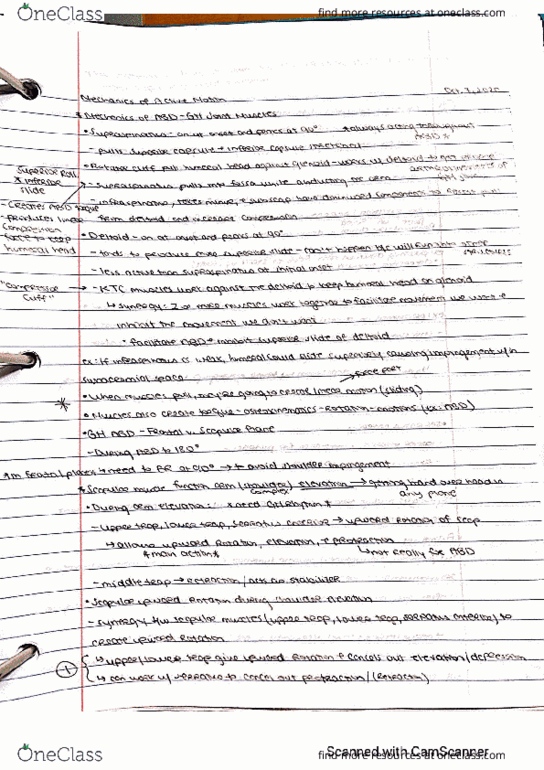 OneClass
find more resources at oneclass.com
Oct. 7, 2020
Mechanics of Active Motion
Mechanics of ABD - GH Joint Muscles
• Supraspinatus - on at onset and peaks at 90°
- pulls superior capsule + inferior capsule
• Rotator cuff put humeral head against glenoid - works w/ deltoid to get
Superior Roll
+ inferior
slide
- supraspinatus pulls into fossa while abducting the arm
- infraspinatus, teres minor, + subscap have downward components to
- creates ABD torque
- produces linear
compression
force to keep
humeral head
from deltoid and increase compression
• Deltoid - on at onset and peaks at 90°
- tends to produce more superior slide - can't happen b/c will run into
- less active than supraspinatus at initial onset
"Compressor
Cuff"
→ - RTC muscles work against the deltoid to keep humeral head on glenoid
↳ synergy: 2 or more muscles work together to facilitate movement we want +
inhibit the movement we don't want
• facilitate ABD + inhibit superior slide of deltoid
ex: If infraspinatus is weak, humeral could slide superiorly causing impingement w/in
subacromial space
→ force part
• When muscles pull, they're going to create linear motion (sliding)
• Muscles also create torque - osteokinematics - rotation - motions (ex: ABD)
• GH ABD - Frontal in Scapular Plane
- During ABD to 180°
* in frontal plane, need to ER at 90° → to avoid shoulder impingement
* Scapular muscle function arm (shoulder) elevation → getting hand over head in
complex
any plane
• During arm elevation: * need GH rotation *
- Upper trap, lower trap, serratus anterior → upward rotation of scap
↳ allows upward rotation, elevation, + protraction
* main action *
↳ not really for ABD
- middle trap → retraction / acts as stabilizer
• Scapular upward rotation during shoulder elevation
- synergy b/w scapular muscles (upper trap, lower trap, serratus anterior) to
create upward rotation
↳ upper/lower trap give upward rotation + cancels out elevation/depression
↳ can work w/ serratus to cancel out protraction/(retraction)
OneClass
Scanned with CamScanner
find more resources at oneclass.com